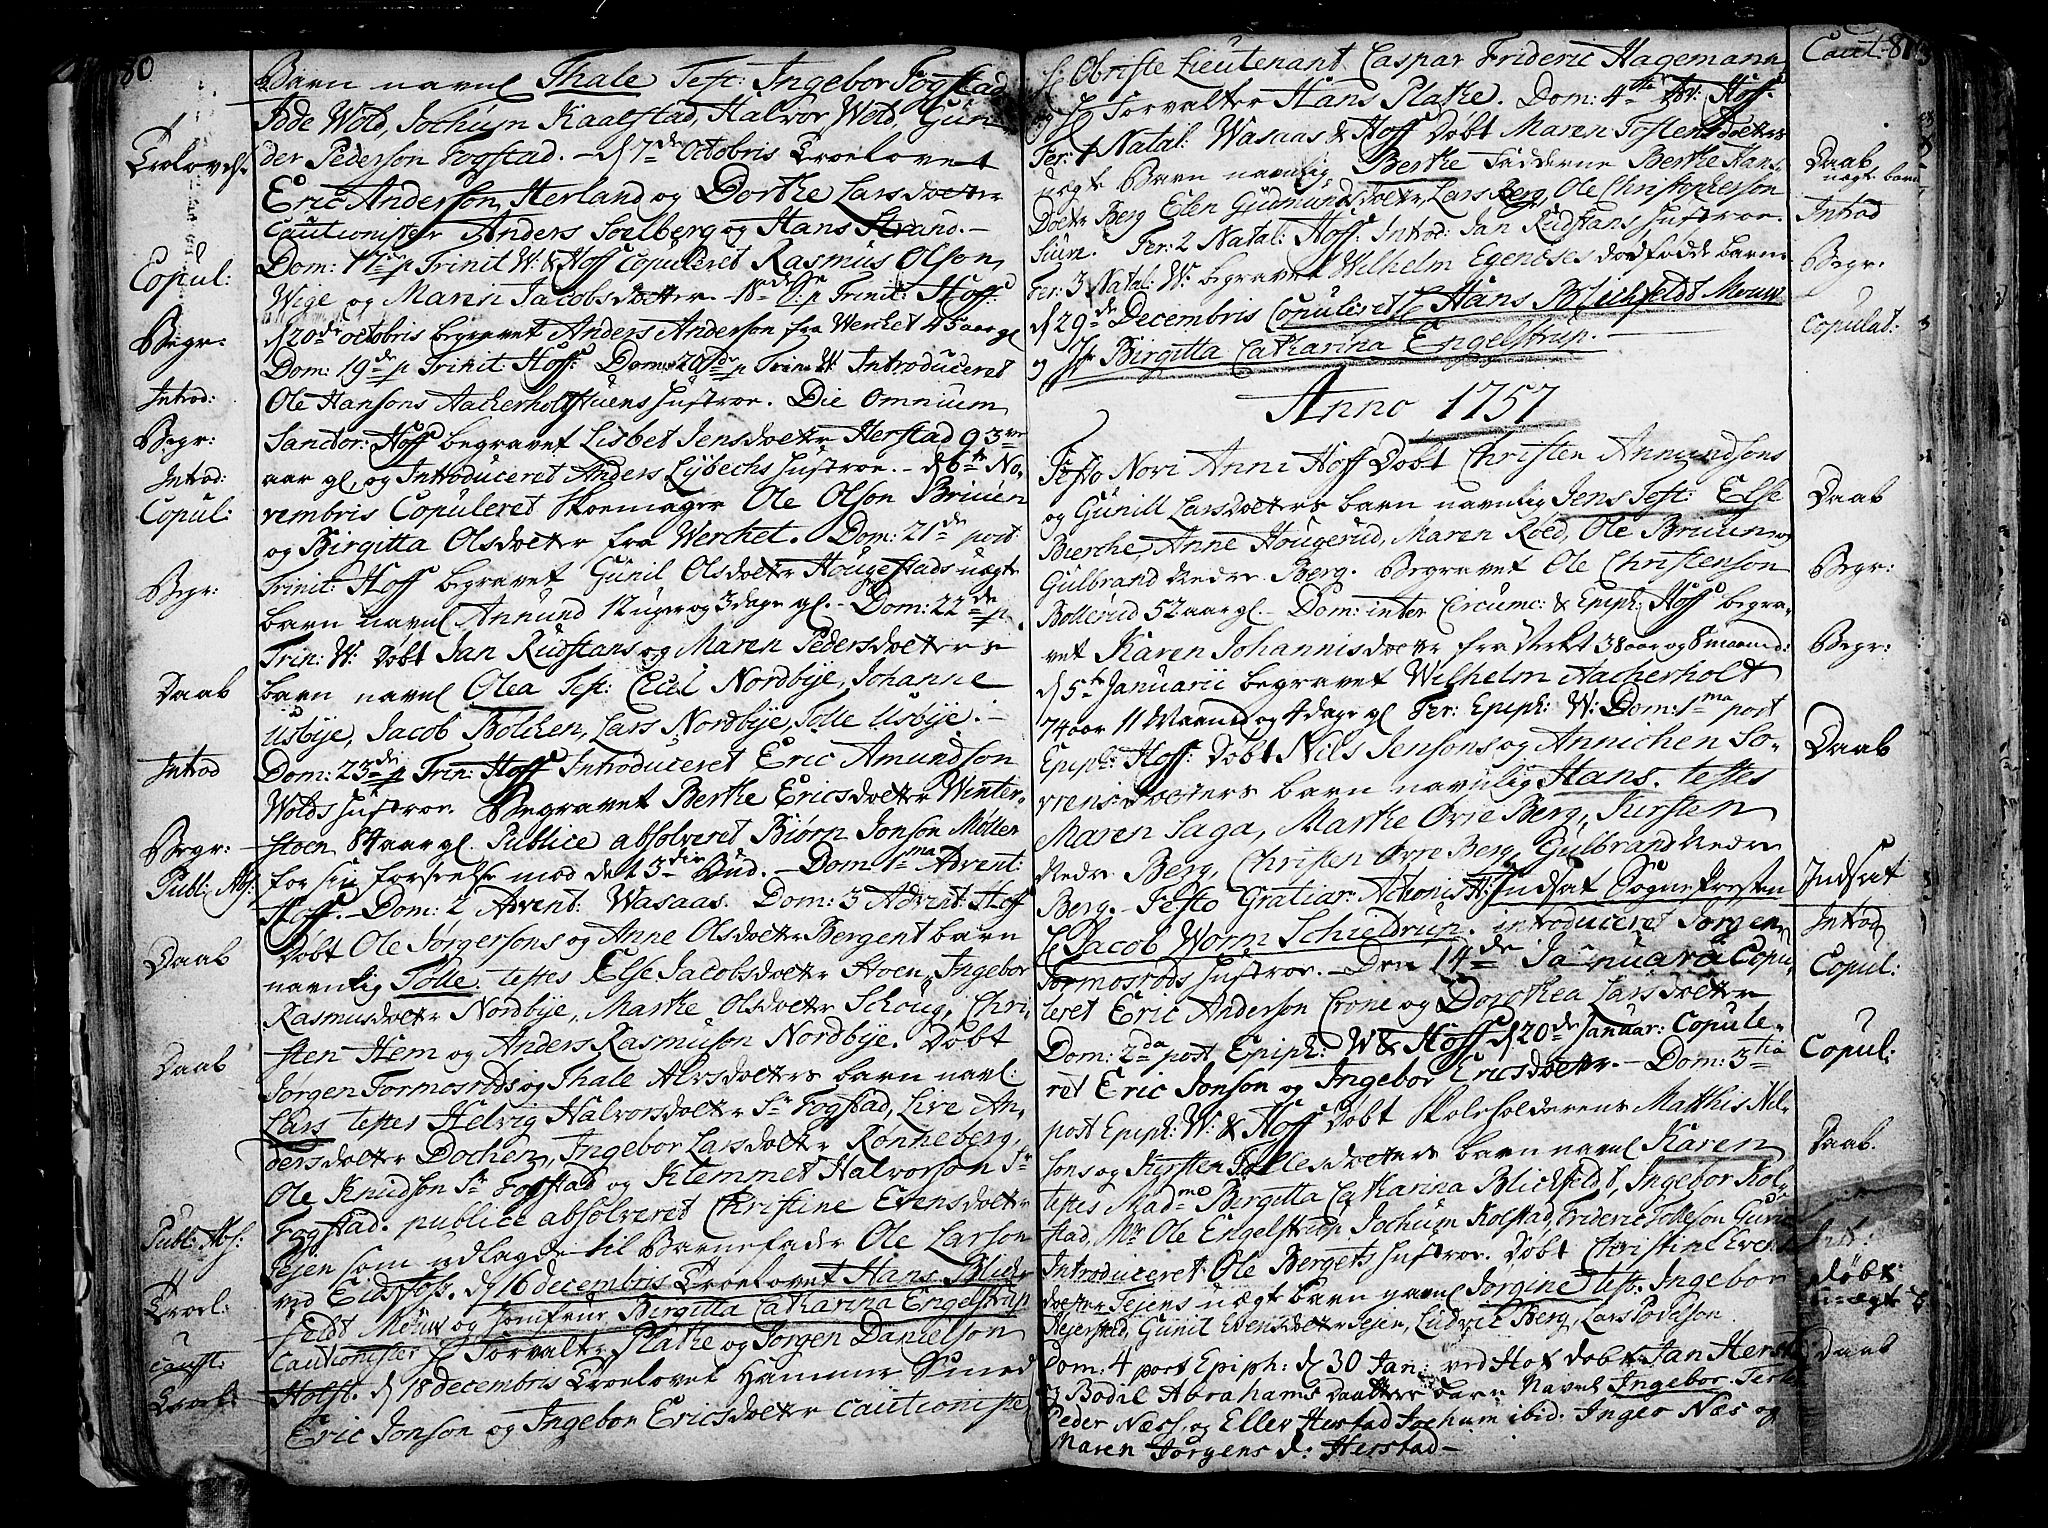 80
Barn navnl Thale Test: Ingebor Fogstad
Idde Wold, Jochum Kaalstad, Halvor Wold, Gun-
der Pederson Fogstad. — d 7de Octobris Troelovet
Troelovels:
Eric Anderson Herland og Dorthe Larsdotter
Cautionister Anders Soelberg og Hans Strand. —
Dom: 17de p Trinit W: & Hoff Copuleret Rasmus Olson
Copul:
Wige og Maren Jacobsdotter. 18de p Trinit: Hoff.
d 20de octobris begravet Anders Anderson fra Werchet 45 aar gl
Begr:
Dom: 19de p Trinit Hoff: Dom: 20de p Trin: W: Introduceret
Ole Hansons Aacherholtstuens Hustroe. Die Omnium
Introd:
Sanctor: Hoff begravet Lisbet Jensdotter Herstad 93
Begr:
aar gl, og Introduceret Anders Lybechs Hustroe. — d 6te No-
Introd:
vembris Copuleret Skoemager Ole Olson Bruuen
Copul:
og Birgitta Olsdotter fra Werchet. Dom: 21de post
Trinit: Hoff begravet Gunil Olsdotter Hougestads uægte
Begr:
barn navnl Amund 12 uger og 3 dage gl. — Dom: 22de p.
Trin: W: Døbt Jan Rudstans og Maren Pedersdotters
barn navnl Olea Test: Cicil Nordbye, Johanne
Daab
Usbye, Jacob Bolchen, Lars Nordbye, Tolle Usbye. —
Dom: 23de p Trin: Hoff Introduceret Eric Amundson
Introd
Wolds Hustroe. Begravet Berthe Ericsdotter Winter-
stoen 84 aar gl. Publice absolveret Biørn Jonson Mølten
Begr:
for sin forseelse mod det 3die Bud. — Dom 1ma Advent:
Publ: Abs:
Hoff. — Dom: 2 Advent: Wasaas. Dom: 3 Advent: Hoff
Døbt Ole Jørgersons og Anne Olsdotter Bergent barn
Daab
navnlig Tolle testes Else Jacobsdotter Stoen, Ingebor
Rasmusdotter Nordbye, Marthe Olsdotter Schoug, Chri-
sten Hem og Anders Rasmuson Nordbye. Døbt
Jørgen Formosrøds og Thale Alvsdotters barn navl:
Daab
Lars testes Helvig Halvorsdotter Sr Fogstad, Live An-
dersdotter Dochen, Ingebor Larsdotter Rønneberg,
Ole Knudson Sr Fogstad og Klemmet Halvorson Sr
Fogstad. publice absolveret Christine Evensdotter
Tejen som udlagde til Barnefader Ole Larson
Publ: Abs:
ved Eidsfoss. d 16 decembris Troelovet Hans Blich-
feldt Meuw og Jomfrue Birgitta Catharina Engelstrup
Troel:
Cautionister Forvalter Plathe og Jørgen Danielson
Caut:
Holst. d 18 decembris Troelovet Hammer Smed
Troel:
Eric Jonson og Ingebor Ericsdotter Cautioniste
Obriste Lieutenant Caspar Frideric Hagemann
Caut: 81
og Forvalter Hans Plathe. Dom: 4te Adv: Hoff.
Fer: 1 Natal: Wasaas & Hoff Døbt Maren Tostensdotters
Daab
uegte Barn navnlig Berthe Fadderne Berthe Hans
uægte barn
Dotter Berg Elen Gudmundsdotter, Lars Berg, Ole Christopherson
Suen. Fer: 2 Natal: Hoff: Introd: Jan Rudstans Hustroe.
Introd
Fer: 3 Natal: W: begravet Wilhelm Egenæses dødfødde barn
Begr:
d 29de Decembris Copuleret Hans Blichfeldt Meuw
Copulat:
og Jfr Birgitta Catharina Engelstrup. —
Anno 1757
Festo Novi Anni Hoff Døbt Christen Amundsons
og Gunill Larsdotters barn navnlig Jens Test: Else
Daab
Bierche, Anne Hougerud, Maren Roed, Ole Bruun og
Gulbrand Nedre Berg. Begravet Ole Christenson
Begr:
Bollerud 52 aar gl. — Dom: inter Circumc: & Epiph: Hoff begra-
vet Karen Johannisdotter fra Verket 38 aar og 8 maaned:
Begr:
d 5te Januarii begravet Wilhelm Aacherholt
74 aar 11 Maaned og 4 dage gl Fer: Epiph: W: Dom: 1ma post
Epiph: Hoff: Døbt Nils Jensons og Annichen Sø-
Daab
vrensdotters barn navnlig Hans. testes
Maren Saga, Marthe Øvre Berg, Kirsten
Nedre Berg, Christen Øvre Berg, Gulbrand Nedre
Berg. — Festo Gratiar: Actionis H: Indsat Sogne Presten
Indsat
Jacob Worm Schieldrup. introduceret Jørgen
Introd
Formosrøds Hustroe. — Den 14de Januarii Copu-
Copul:
leret Eric Anderson Crone og Dorothea Larsdotter
Dom: 2da post Epiph: W & Hoff d 20de Januar: Copule-
Copul:
ret Eric Jonson og Ingebor Ericsdotter. — Dom: 3tia
post Epiph: W: & Hoff Døbt Skoleholderens Matthis Nil-
sons og Kirsten Tollesdotters barn navnl Karen
Daab.
testes Madme Birgitta Catharina Blichfeldt, Ingebor Kol-
stad, Mr Ole Engelstrup Jochum Kolstad, Frideric Tolleson
Introduceret Ole Bergets Hustroe. Døbt Christine Evens
Int:
dotter Tejens uægt barn navnl Jørgine test. Ingebor
døbt
Hejersted, Gunil Evensdotter Tejen, Ludvik Berg, Lars Povelson
uægte b
Dom: 4 post Epiph: d 30 Jan: ved Hof døbt Jan Herst
Daab
og Bodil Abrahams daatters barn Navnl Ingebor. Teste
Peder Næss, og Eller Herstad Jochum ibid: Inger Næs og
Maren Jørgens d: Herstad —